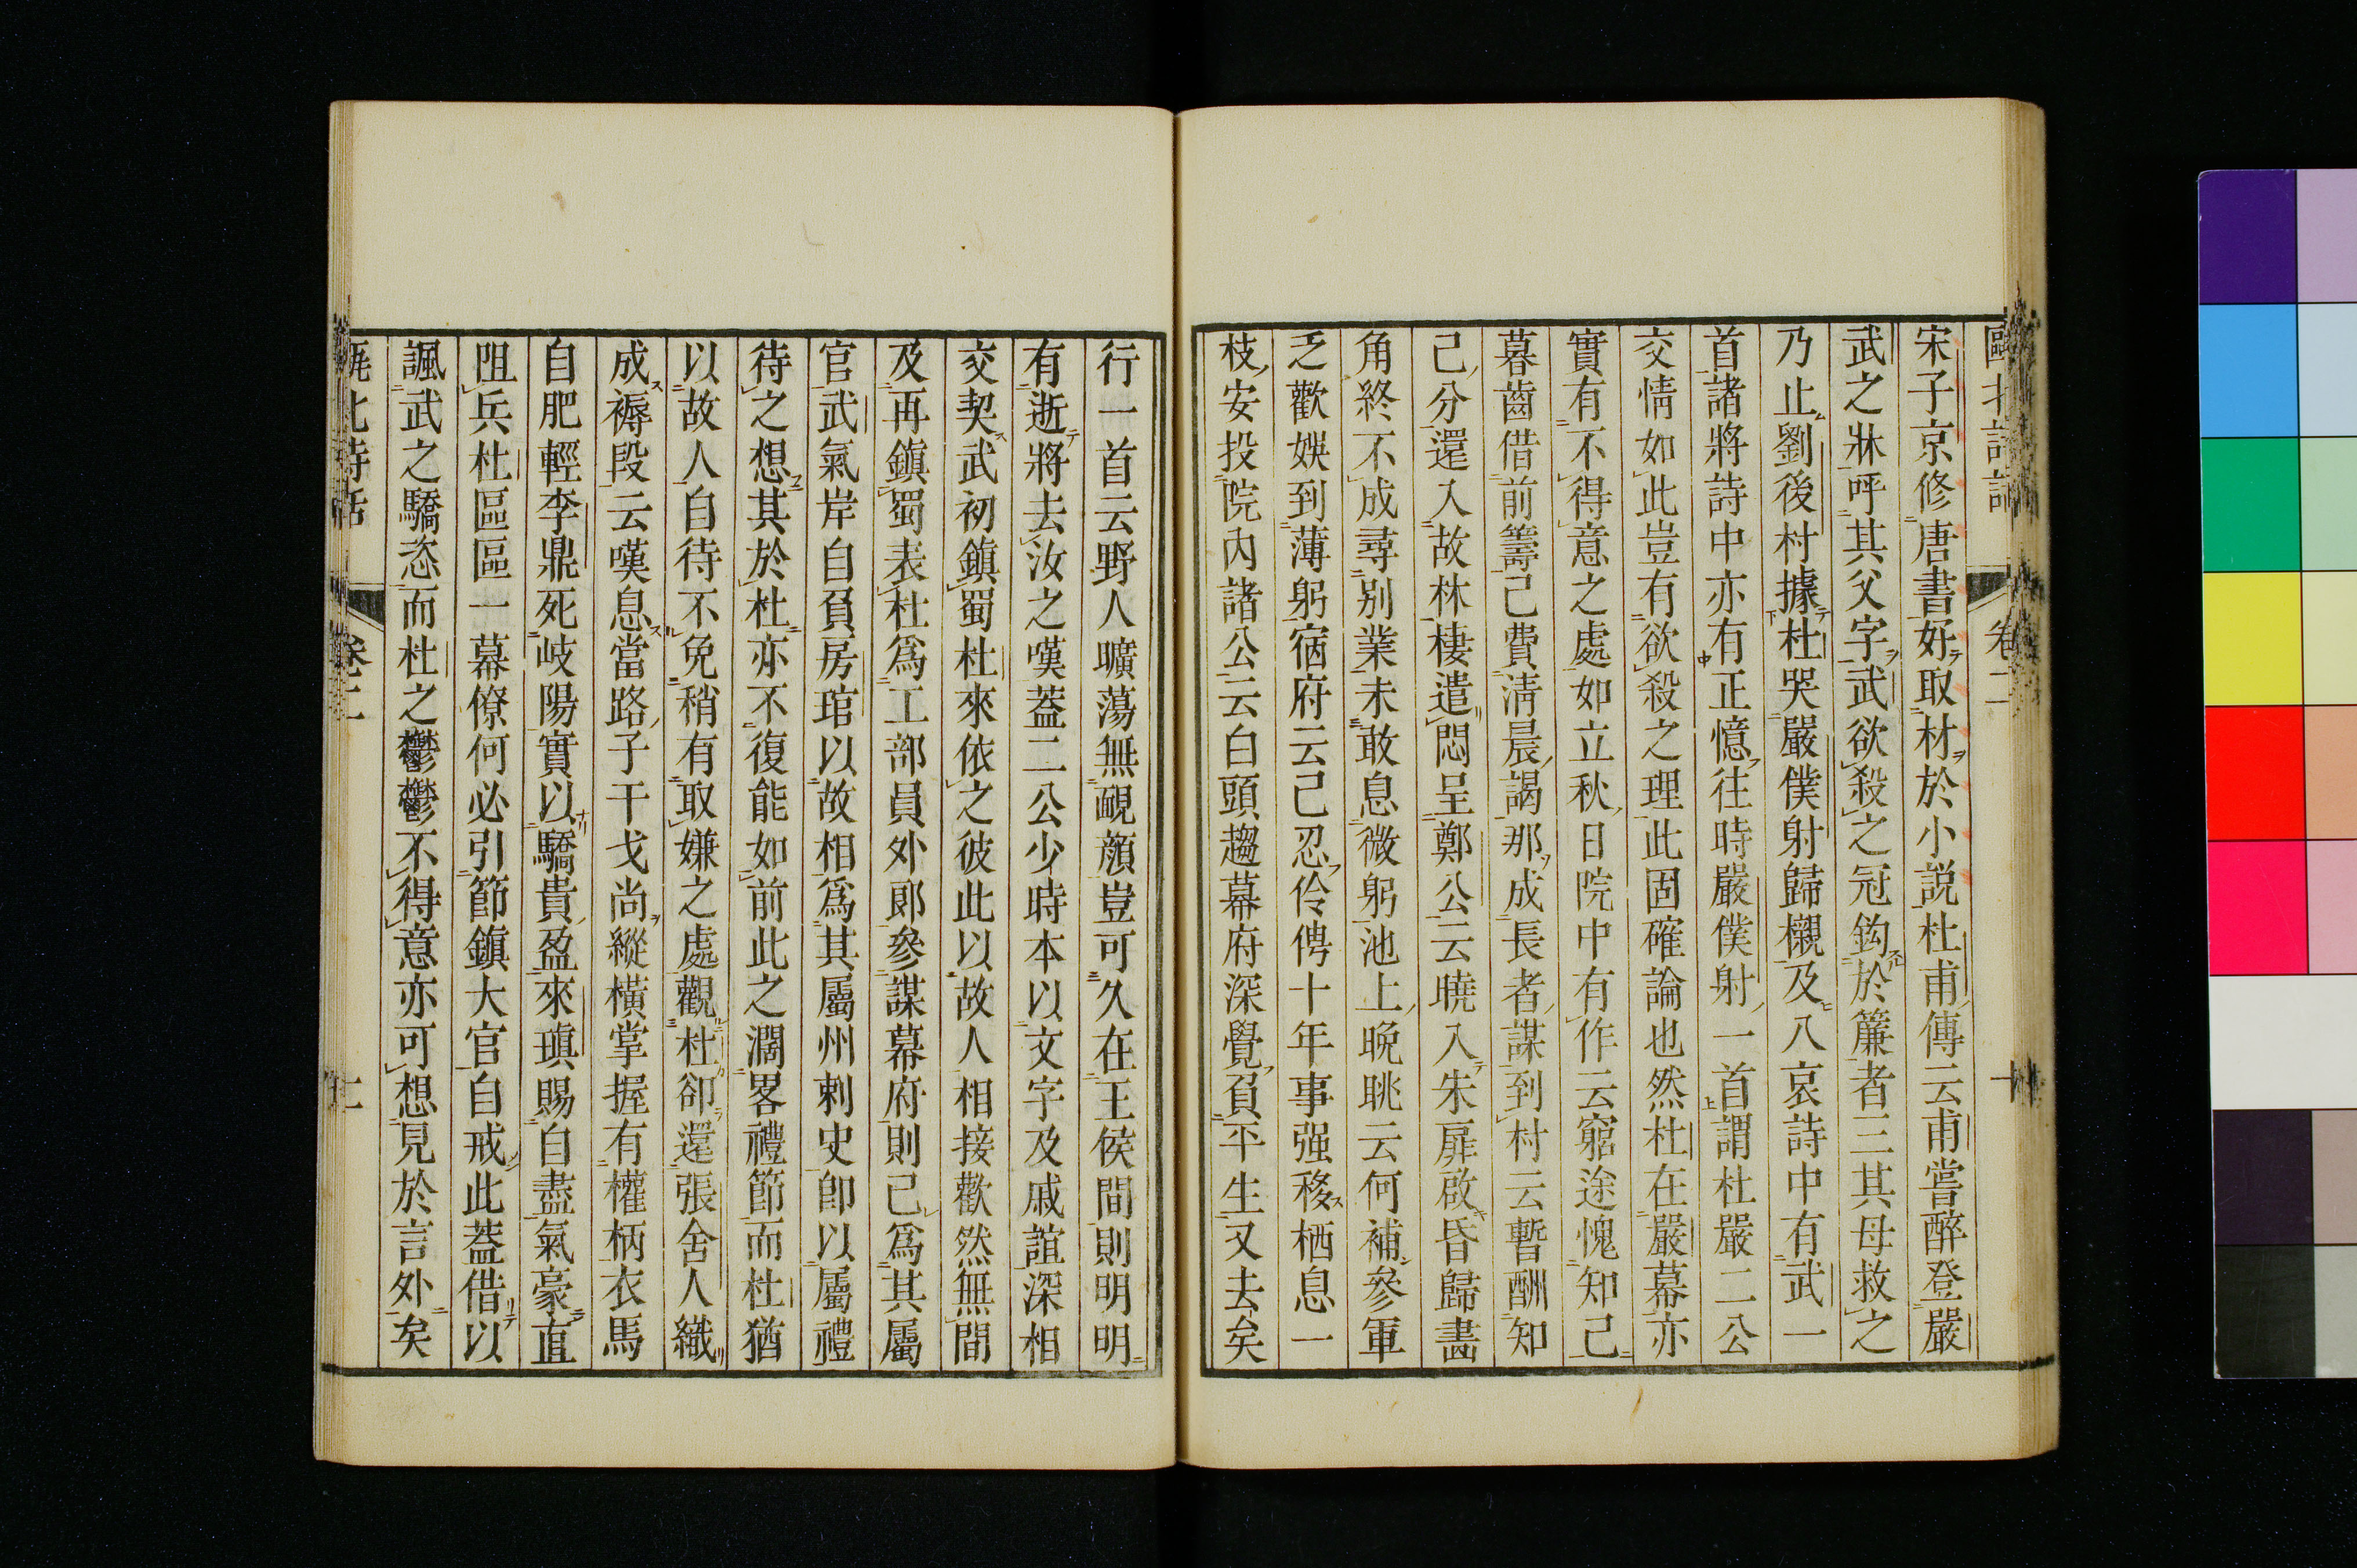 宋子京修唐書好取材於小説杜甫傳云甫嘗醉登嚴
武之牀呼其父字武欲殺之冠鈎於簾者三其母救之
乃止劉後村據杜哭嚴僕射歸櫬及八哀詩中有武一
首諸將詩中亦有正憶往時嚴僕射一首謂杜嚴二公
交情如此豈有欲殺之理此固確論也然杜在嚴幕亦
實有不得意之處如立秋日院中有作云窮途愧知己
暮齒借前籌己費淸晨謁那成長者謀到村云暫酬知
己分還入故林棲遣悶呈鄭公云曉入朱扉啟昏歸畵
角終不成尋別業未敢息微躬池上晩眺云何補參軍
乏歡娛到薄躬宿府云己忍伶俜十年事强移栖息一
枝安投院內諸公云白頭趨幕府深覺負平生又去矣
行一首云野人曠蕩無靦顏豈可久在王侯間則明明
有逝將去汝之嘆葢二公少時本以文字及戚誼深相
交契武初鎭蜀杜來依之彼此以故人相接歡然無間
及再鎭蜀表杜爲工部員外郞參謀幕府則己爲其屬
官武氣岸自負房琯以故相爲其屬州刺史卽以屬禮
待之想其於杜亦不復能如前此之濶畧禮節而杜猶
以故人自待不免稍有取嫌之處觀杜卻還張舍人織
成褥段云嘆息當路子干戈尚縱橫掌握有權柄衣馬
自肥輕李鼎死岐陽實以驕貴盈來瑱賜自盡氣豪直
阻兵杜區區一幕僚何必引節鎭大官自戒此葢借以
諷武之驕恣而杜之鬱鬱不得意亦可想見於言外矣
甌北詩話 卷二